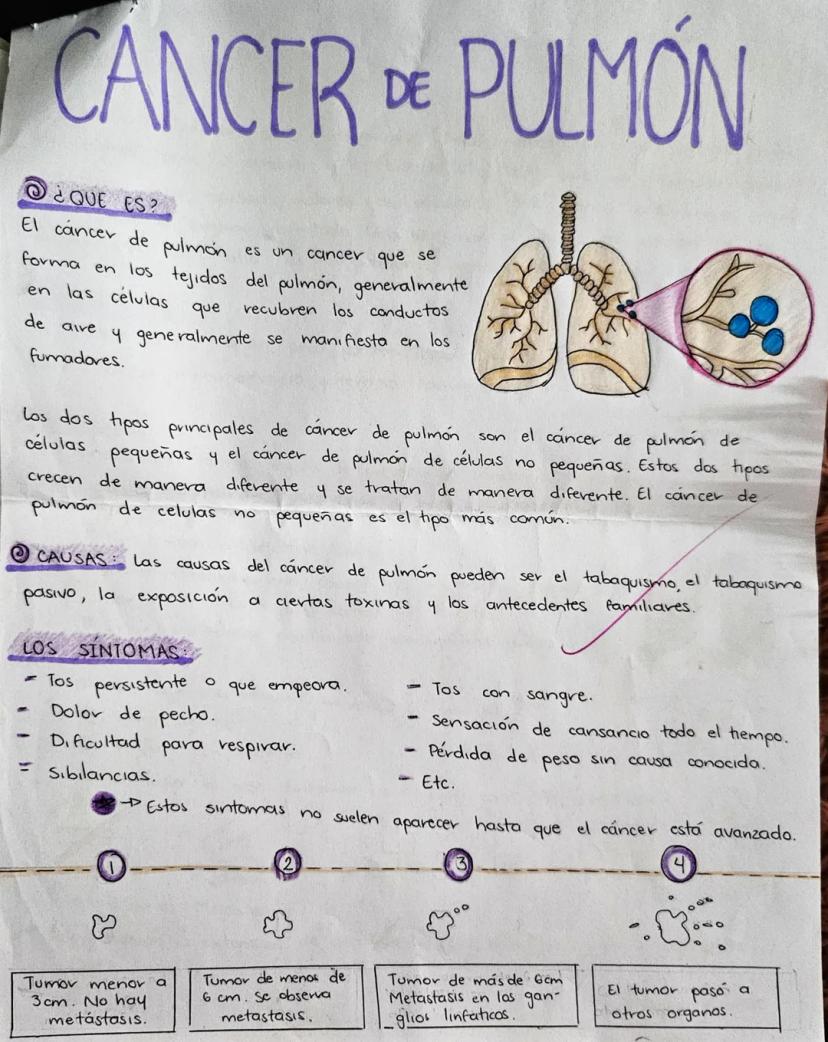 CANCER DE PULMÓN
¿QUE ES?
El cáncer de pulmón es un cancer que se
forma en los tejidos del pulmón, generalmente
en las células que recubren los conductos
de aire y generalmente se manifiesta en los
fumadores.
Los dos tipos principales de cáncer de pulmón son el cáncer de pulmón de
células pequeñas y el cáncer de pulmón de células no pequeñas. Estos dos tipos
crecen de manera diferente y se tratan de manera diferente. El cáncer de
pulmón de celulas no pequeñas es el tipo más común.
CAUSAS: Las causas del cáncer de pulmón pueden ser el tabaquismo, el tabaquismo
pasivo, la exposición a ciertas toxinas y los antecedentes familiares.
LOS SÍNTOMAS:
- Tos persistente o que empeora.
- Dolor de pecho.
- Dificultad para respirar.
- Sibilancias.
- Tos con sangre.
- Sensación de cansancio todo el tiempo.
- Pérdida de peso sin causa conocida.
- Etc.
→ Estos sintomas no suelen aparecer hasta que el cáncer está avanzado.
1
2
3
4
Tumor menor a
3cm. No hay
metástasis.
Tumor de menos de
6 cm. Se observa
metastasis.
Tumor de más de 6cm
Metastasis en los gan-
glios linfaticos.
El tumor pasó a
otros organos.